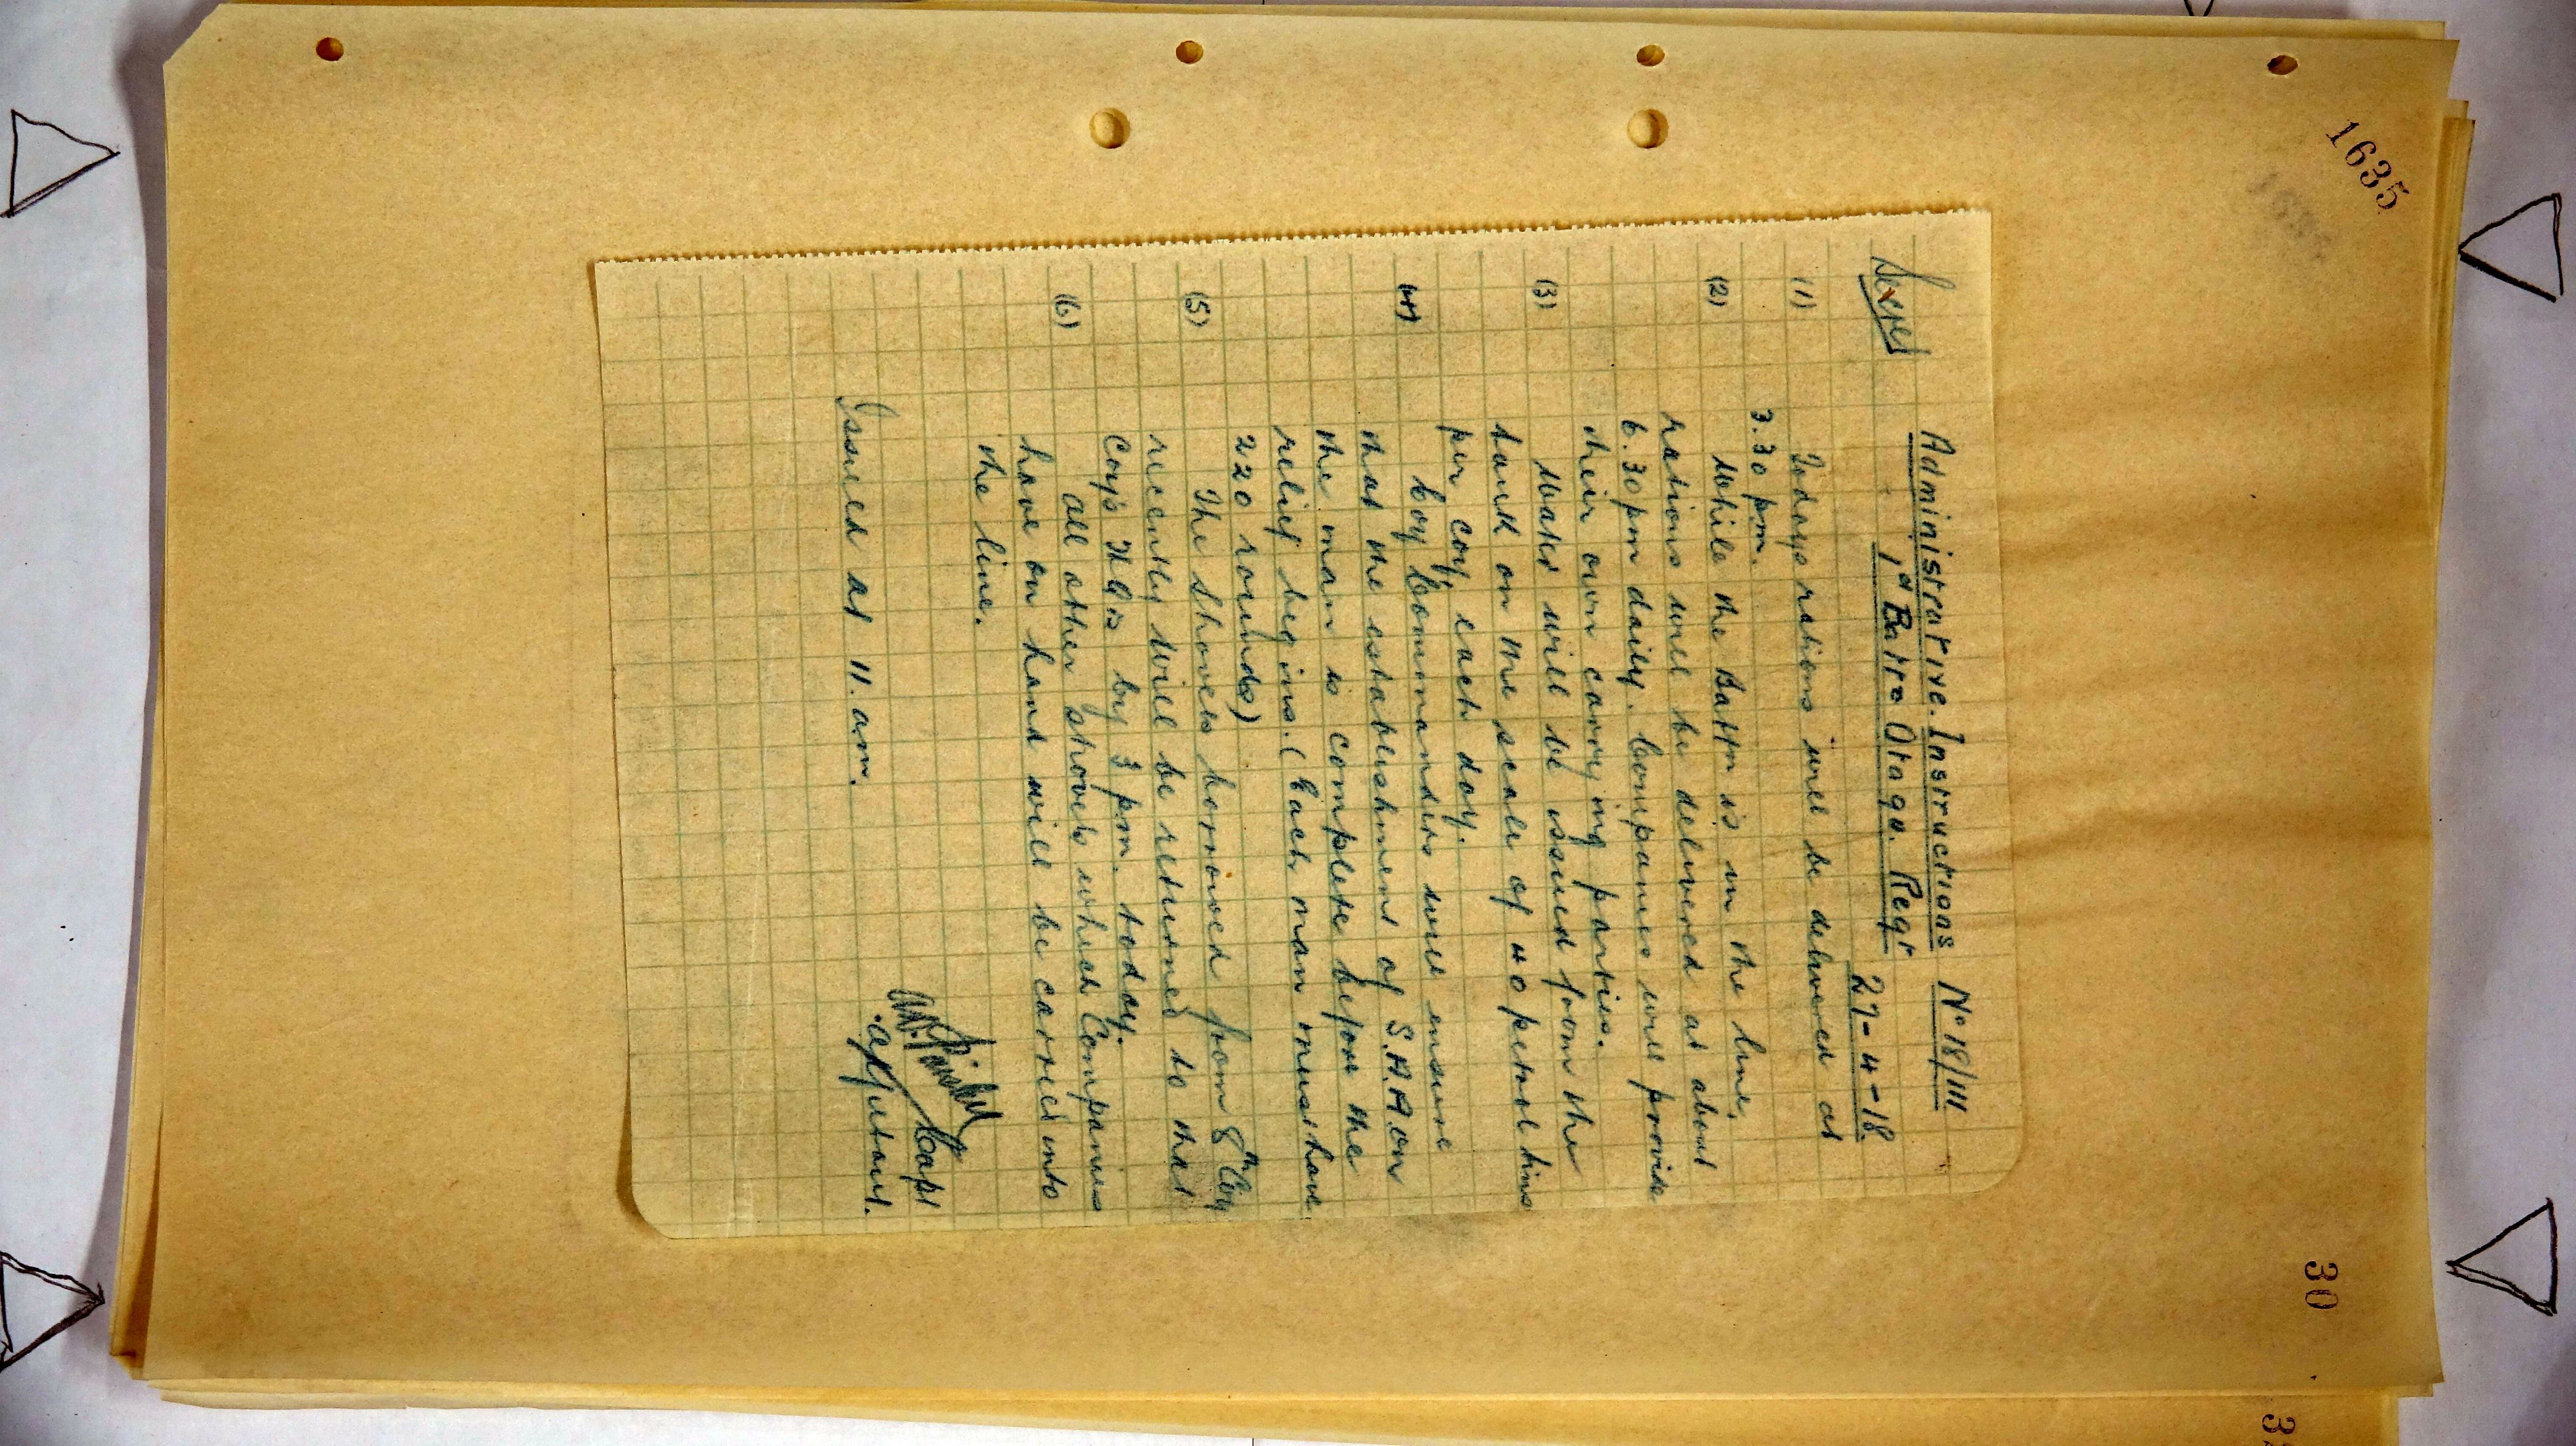 1635
30
Secret
Administrative. Instructions No 18/111
1st Battn Otago. Regt
27-4-18.
(1) Todays rations will be delivered at
3.30 pm.
(2) While the Battn is in the line,
rations will be delivered at about
6.30 pm daily. Companies will provide
their own carrying parties.
(3) Water will be issued from the
tank on the scale of 40 petrol tins
per coy, each day.
(4) Coy Commanders will ensure
that the establishment of S.A.A on
the man is complete before the
relief begins. (Each man must have
220 rounds)
(5) The shovels borrowed from 8th Coy
recently will be returned to that
Coy's HQrs by 3 pm. today.
(6) All other shovels which Companies
have on hand will be carried into
the line.
Capt
Adjutant.
Issued at 11. am.